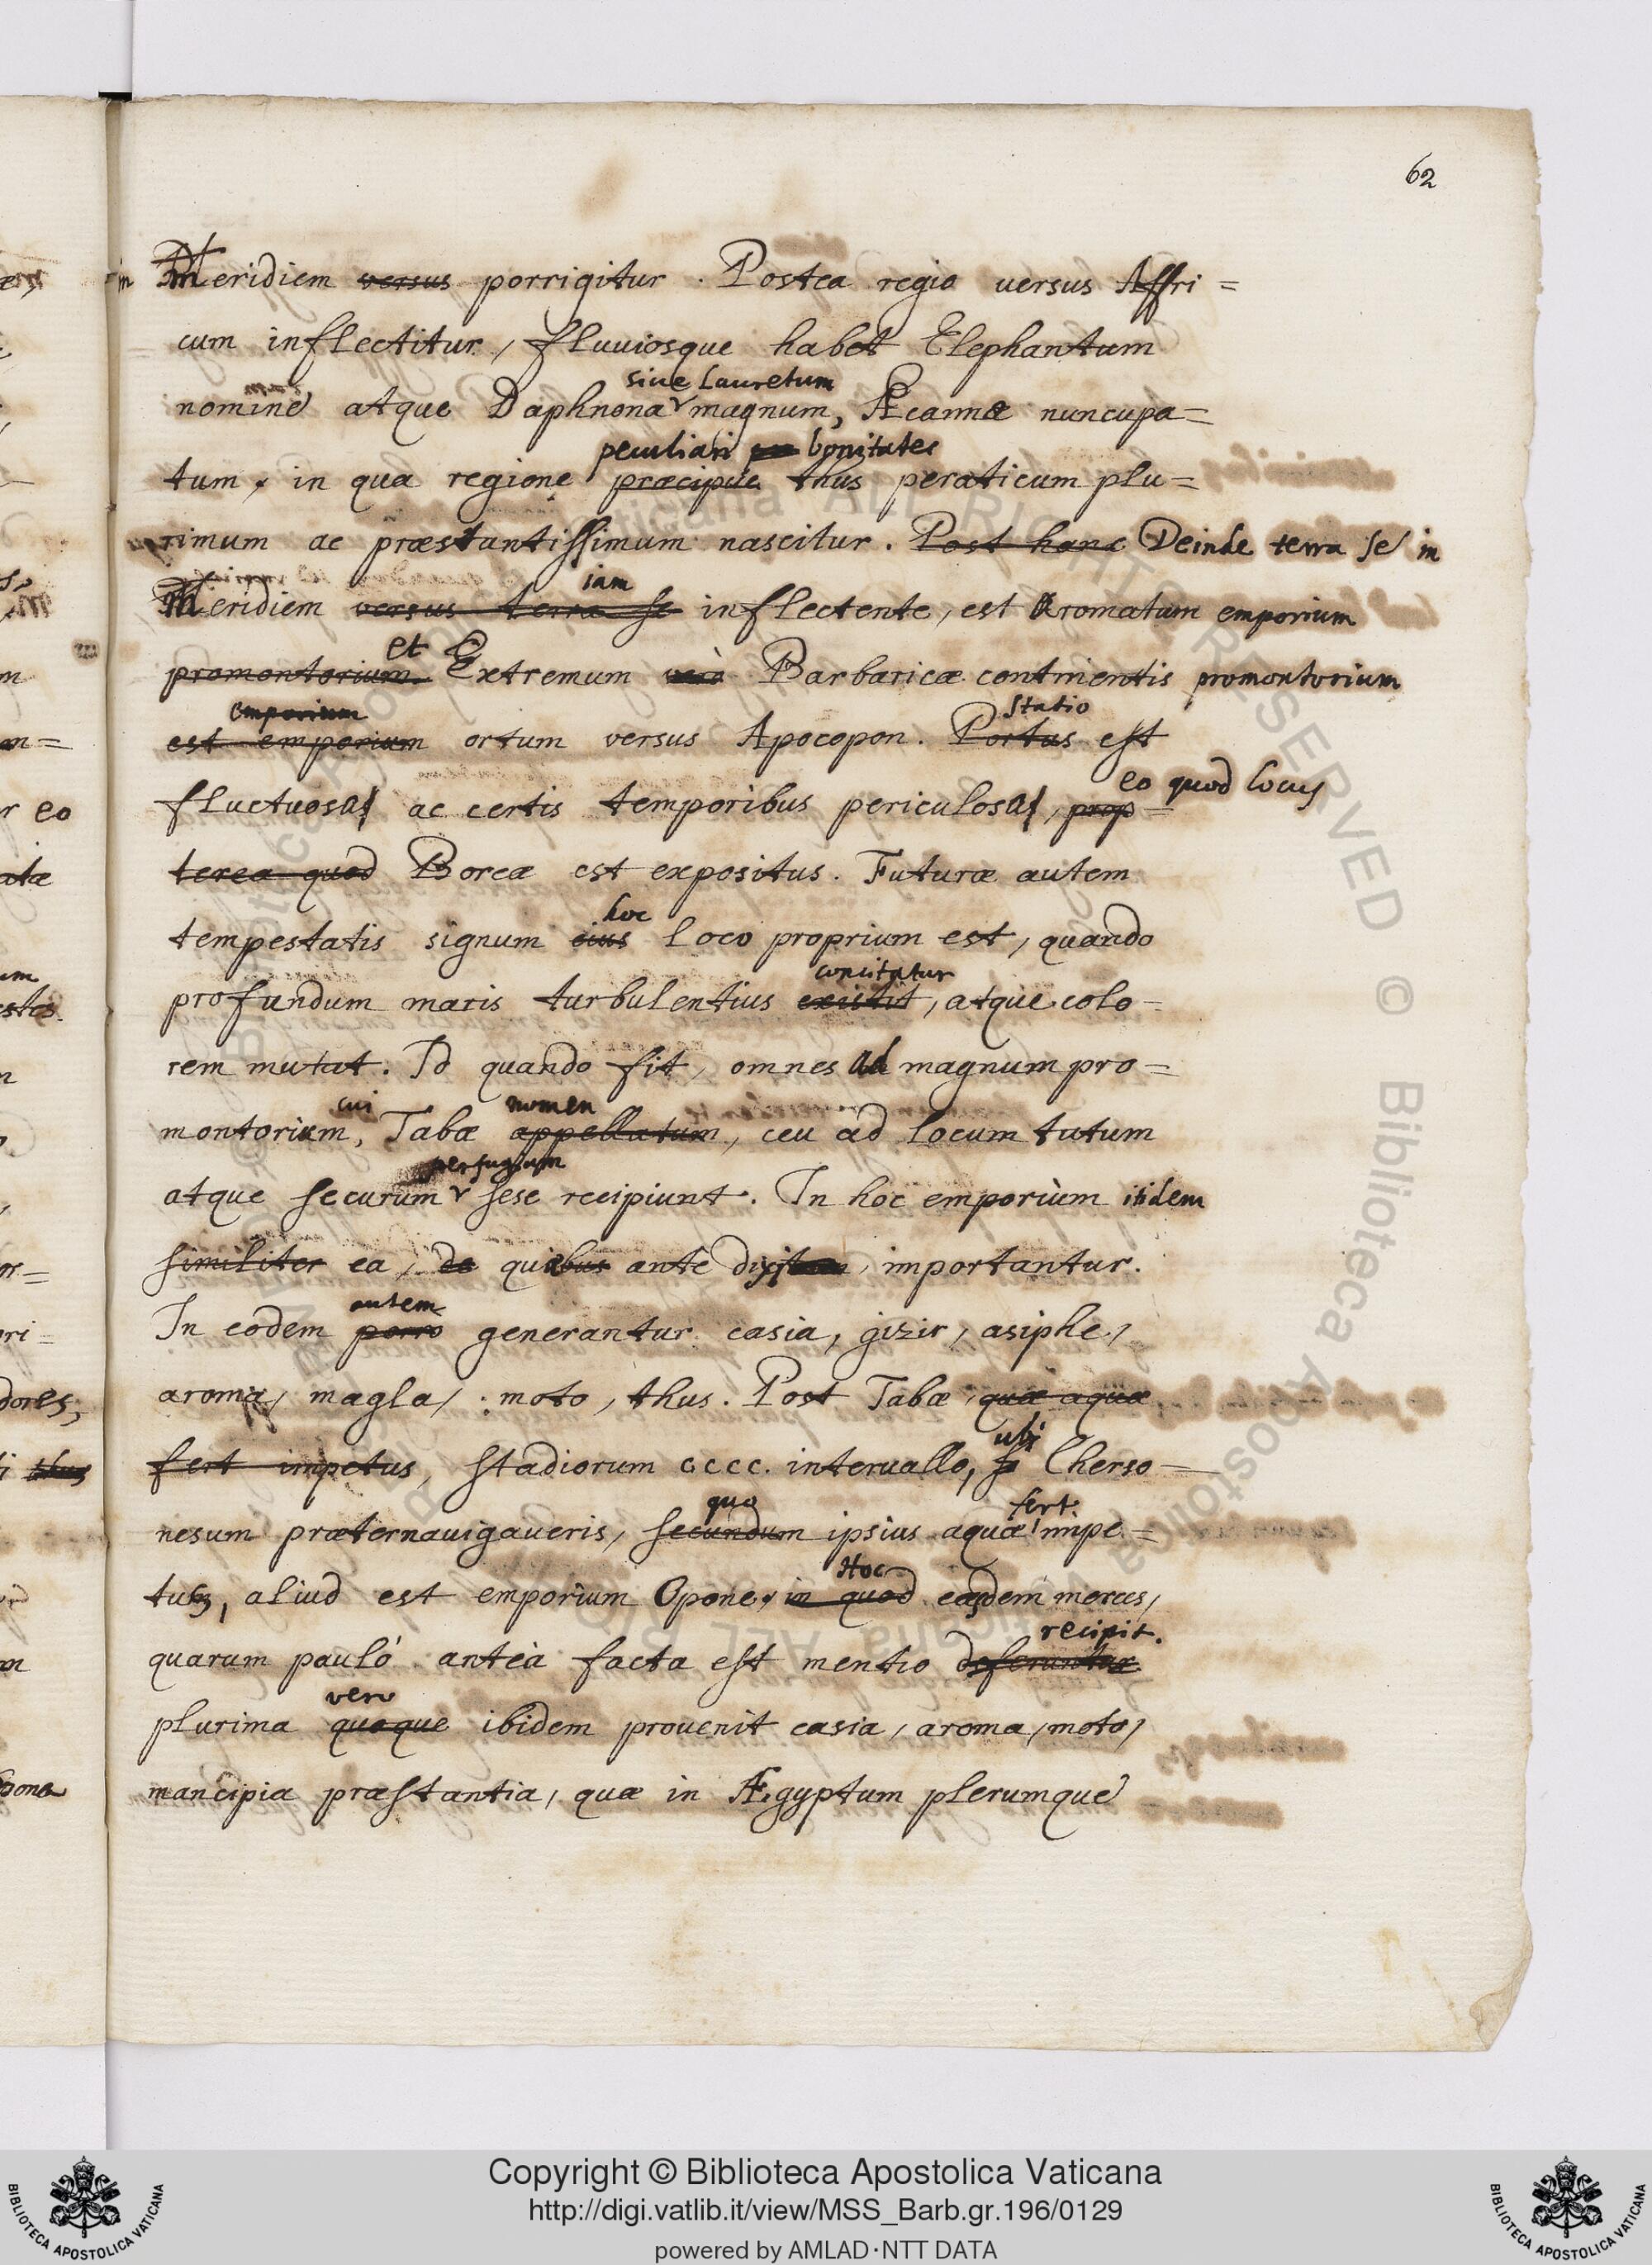 62
in Meridiem versus porrigitur. Postea regio uersus Affri=
cum inflectitur, fluuiosque habet Elephantum
siue Lauretum
nomine atque Daphnona magnum, Acannæ nuncupa=
peculiari bonitate
tum, in qua regione præcipue thus peraticum plu=
rimum ac præstantissimum nascitur. Post hanc Deinde terra se in
iam
Meridiem versus terra se inflectente, est Aromatum emporium
et
promontorium. Extremum vero Barbaricæ continentis promontorium
emporium Statio
est emporium ortum versus Apocopon. Portus est
eo quod locus
fluctuosa ac certis temporibus periculosa, prop=
terea quod Boreæ est expositus. Futuræ autem
hoc
tempestatis signum eius loco proprium est, quando
concitatur
profundum maris turbulentius existit, atque colo=
rem mutat. Id quando fit, omnes ad magnum pro=
cui nomen
montorium, Tabæ appellatum, ceu ad locum tutum
perfugium
atque securum sese recipiunt. In hoc emporium itidem
similiter ea, de quibus ante diximus, importantur.
autem
In eodem porro generantur casia, gizir, asiphe,
aroma, magla, moto, thus. Post Tabæ quæ aquæ
ubi
fert impetus, stadiorum cccc. interuallo, Cherso=
quo fert
nesum præternauigaueris, secundum ipsius aquæ impe=
Hoc
tus, aliud est emporium Opone, in quod easdem merces,
recipit.
quarum pauló anteà facta est mentio deferuntur
vero
plurima quoque ibidem prouenit casia, aroma, moto,
mancipia præstantia, quæ in Ægyptum plerumque
Copyright © Biblioteca Apostolica Vaticana
http://digi.vatlib.it/view/MSS_Barb.gr.196/0129
powered by AMLAD·NTT DATA
BIBLIOTECA APOSTOLICA VATICANA
BIBLIOTECA APOSTOLICA VATICANA